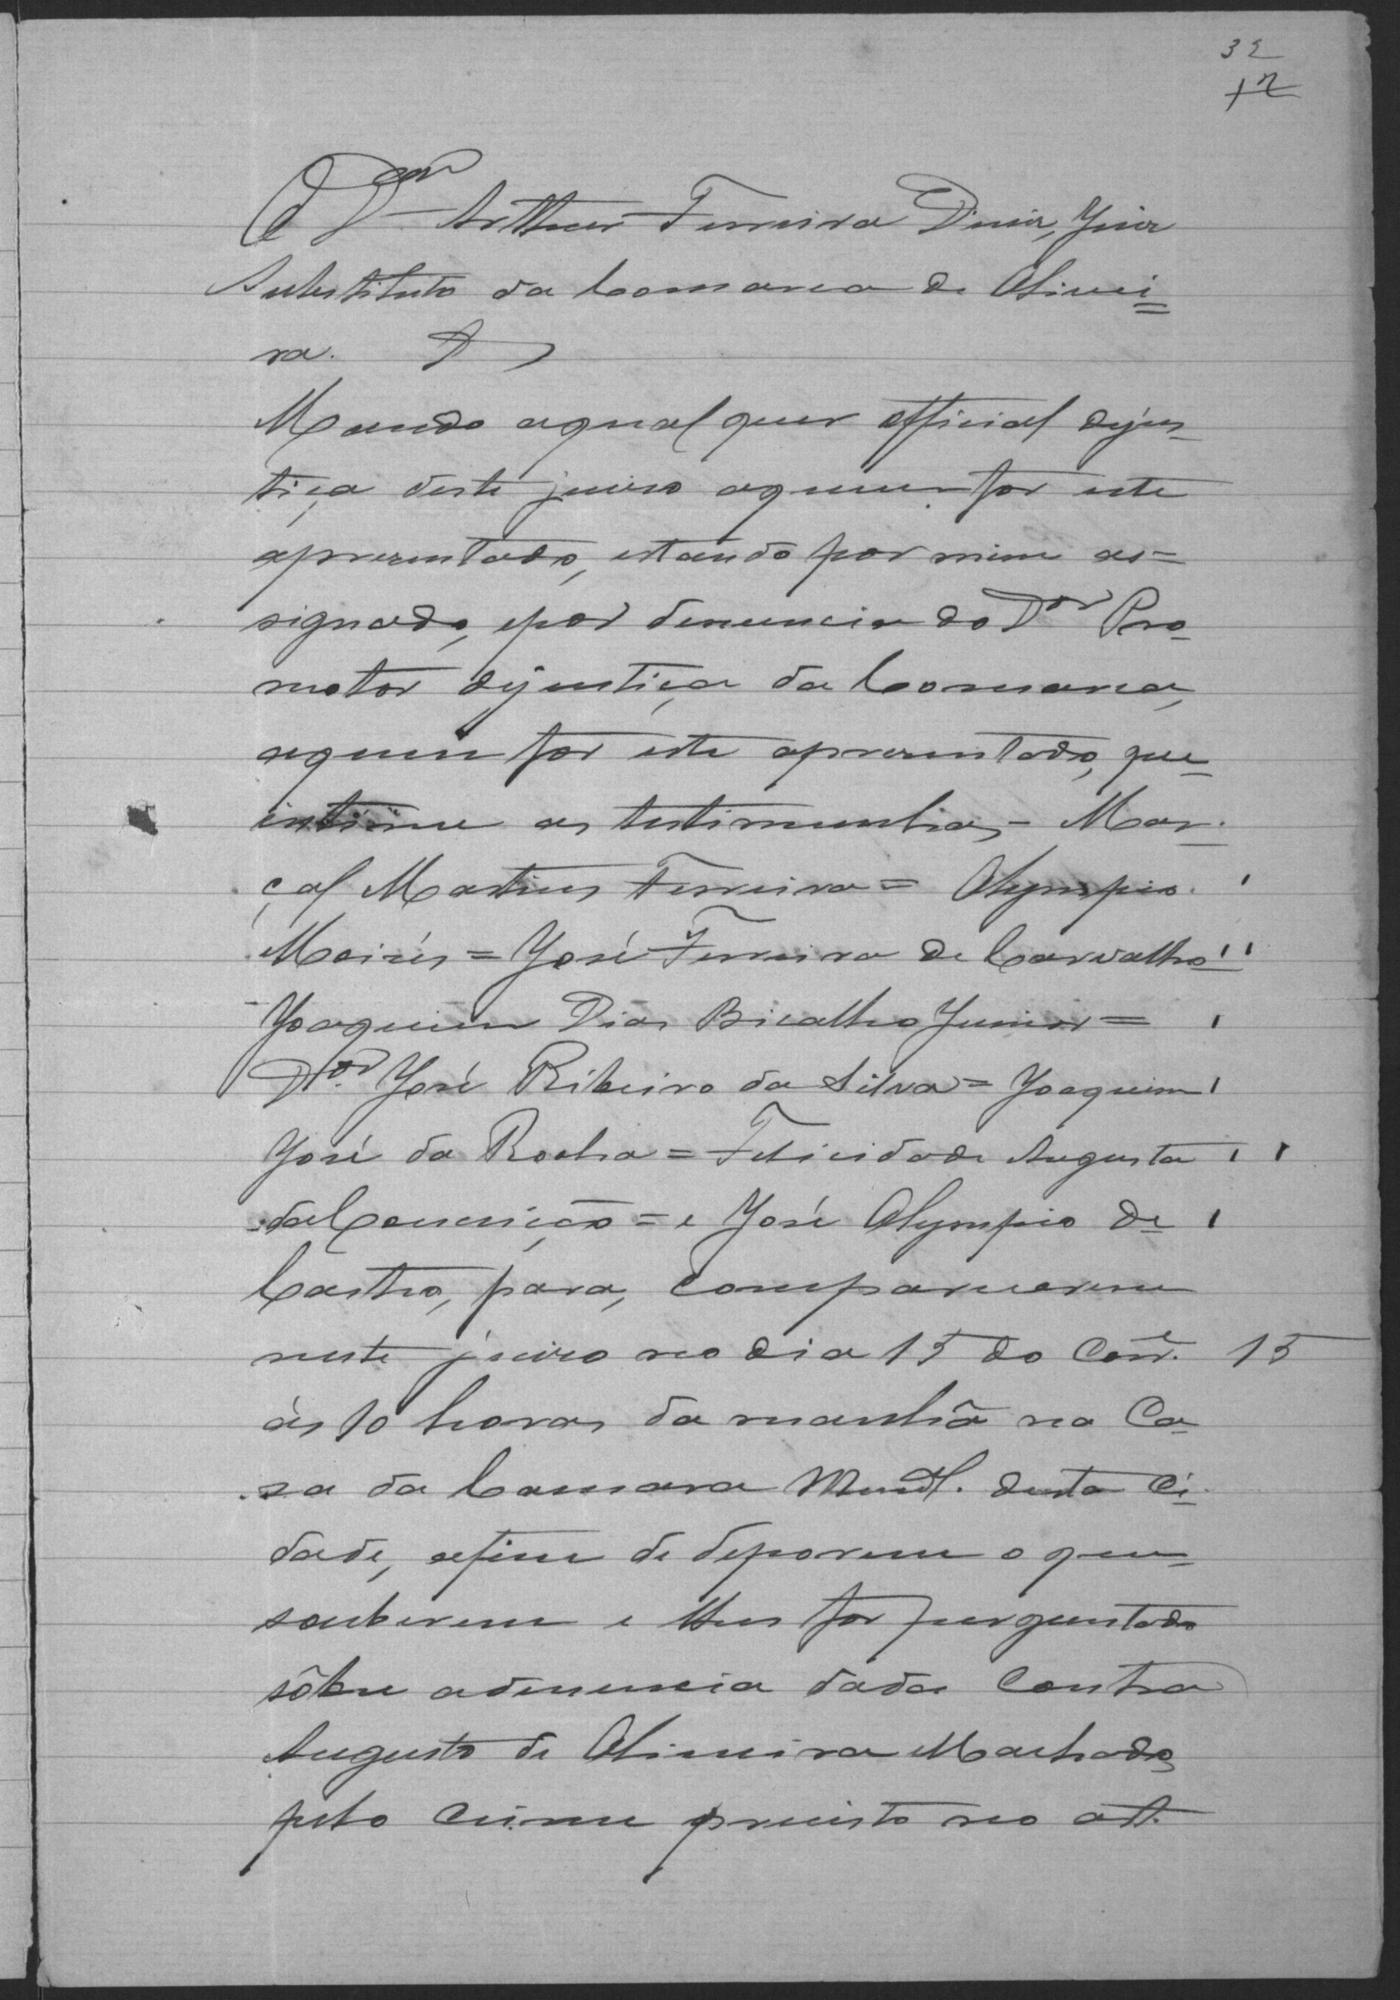 32
17
O Dor Arthur Ferreira Diniz, Juiz
Substituto da Comarca de Olivei=
ra.
Mando aqualquer official dejus-
tiça deste juizo aquem for este
apresentado, estando por mim as=
signado, epor denuncia do Dor Pro-
motor dejustiça da Comarca,
aquem for este apresentado, que
intime as testimunhas - Mar-
çal Martins Ferreira = Olympio
Moizés = José Ferreira de Carvalho
Joaquim Dias Bicalho Junior =
Dor José Ribeiro da Silva = Joaquim
José da Rocha = Felicidade Augusta
da Conceição = e José Olympio de
Castro, para, comparecerem
neste juizo no dia 15 do Corre. 15
ás 10 horas da manhã na Ca-
za da Camara Munal. desta Ci-
dade, afim de deporem o que
souberem e lhes for perguntado
sôbre adenuncia dada Contra
Augusto de Oliveira Machado,
pelo Crime previsto no art.